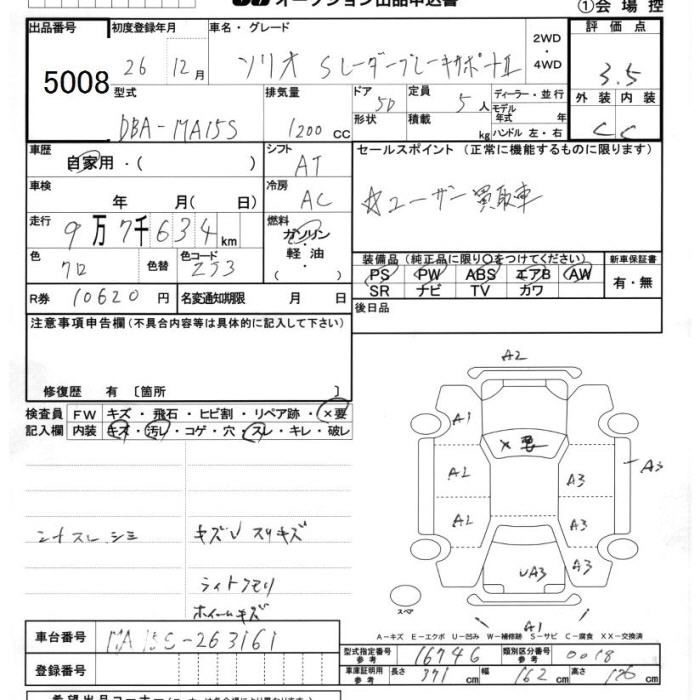 オークション出品申込書
①会場控
出品番号 初度登録年月 車名・グレード 2WD ・ 4WD 評価点
5008 26年 12月 ソリオ Sレーダーブレーキサポート II 3.5
型式 排気量 ドア 定員 ディーラー・並行 外装 内装
DBA-MA15S 1200 cc 5D 5人 モデル年式 年 C C
形状 積載 kg ハンドル 左・右
車歴 シフト セールスポイント (正常に機能するものに限ります)
自家用・( ) AT
車検 年 月( 日) 冷房 AC ☆ユーザー買取車
走行 9万7千634km 燃料 ガソリン・軽油・
色 クロ 色替 色コード ZJ3
装備品 (純正品に限り○をつけてください) 新車保証書
PS PW ABS エアB AW 有・無
SR ナビ TV カワ
R券 10620円 名変通知期限 月 日 後日品
注意事項申告欄(不具合内容等は具体的に記入して下さい)
修復歴 有 〔箇所 〕
検査員 FW キズ・飛石・ヒビ割・リペア跡・×要
記入欄 内装 キズ・汚レ・コゲ・穴・スレ・キレ・破レ
A2
A1
×要
A2 A3 A3
A2 A3
UA3 A3
A1
スペア
シートスレ、シミ キズU スリキズ
ライトクモリ
ホイールキズ
A-キズ E-エクボ U-凹み W-補修跡 S-サビ C-腐食 XX-交換済
車台番号 MA15S-263161
型式指定番号 参考 16746 類別区分番号 参考 0018
登録番号 車庫証明用 参考 長さ 371cm 幅 162cm 高さ 176cm